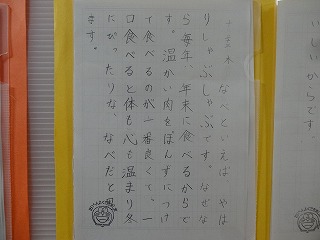 いしいからです。
なべといえば、やは
りしゃぶしゃぶです。なぜな
ら毎年、年末に食べるからで
す。温かい肉をぽんずにつけ
て食べるのが一番良くて、一
口食べると体も心も温まり冬
にぴったりな、なべだと
ます。